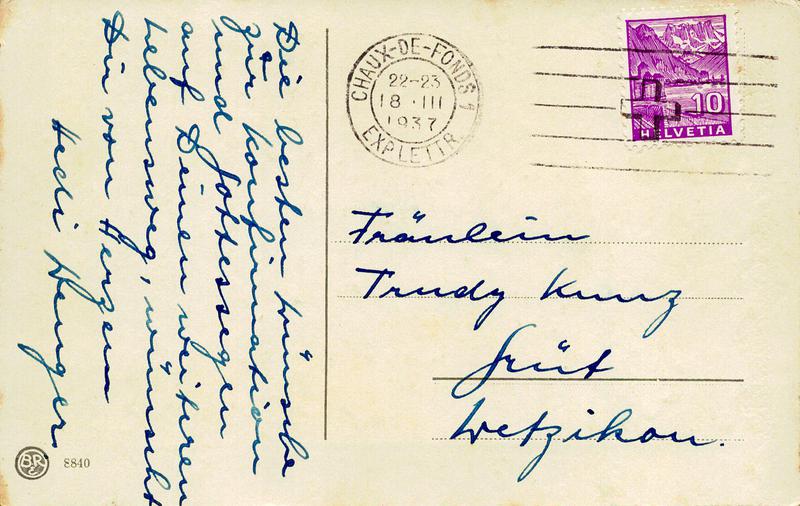 Die besten Wünsche
zur Konfirmation
und Gottessegen
auf Deinen weiteren
Lebensweg, wünscht
Dir von Herzen
Hedi Henger.
CHAUX-DE-FONDS 1
22-23
18.III
1937
EXP. LETTR.
10
HELVETIA
Fräulein
Trudy Kunz
Grüt
Wetzikon.
BR
8840